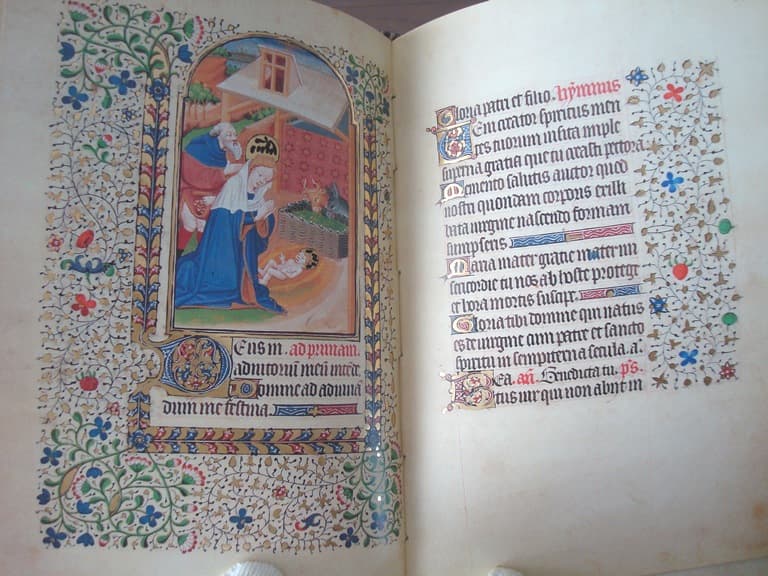 Deus in. ad primam.
adiutoriū meū intede.
Domine ad adiuuā
dium me festina
Gloria patri et filio. hȳmnus
Veni creator spiritus men
tes tuorum visita imple
superna gratia que tu creasti pectora
Memento salutis auctor quod
nostri quondam corporis exilli
bata uirgine nascendo formam
sumpseris
Maria mater gratie mater mi
sericordie tu nos ab hoste protege
et hora mortis suscipe.
Gloria tibi domine qui natus
es de uirgine cum patre et sancto
spiritu in sempiterna secula. a.
Bea. añ. Benedicta tu. ps.
tus uir qui non abiit in